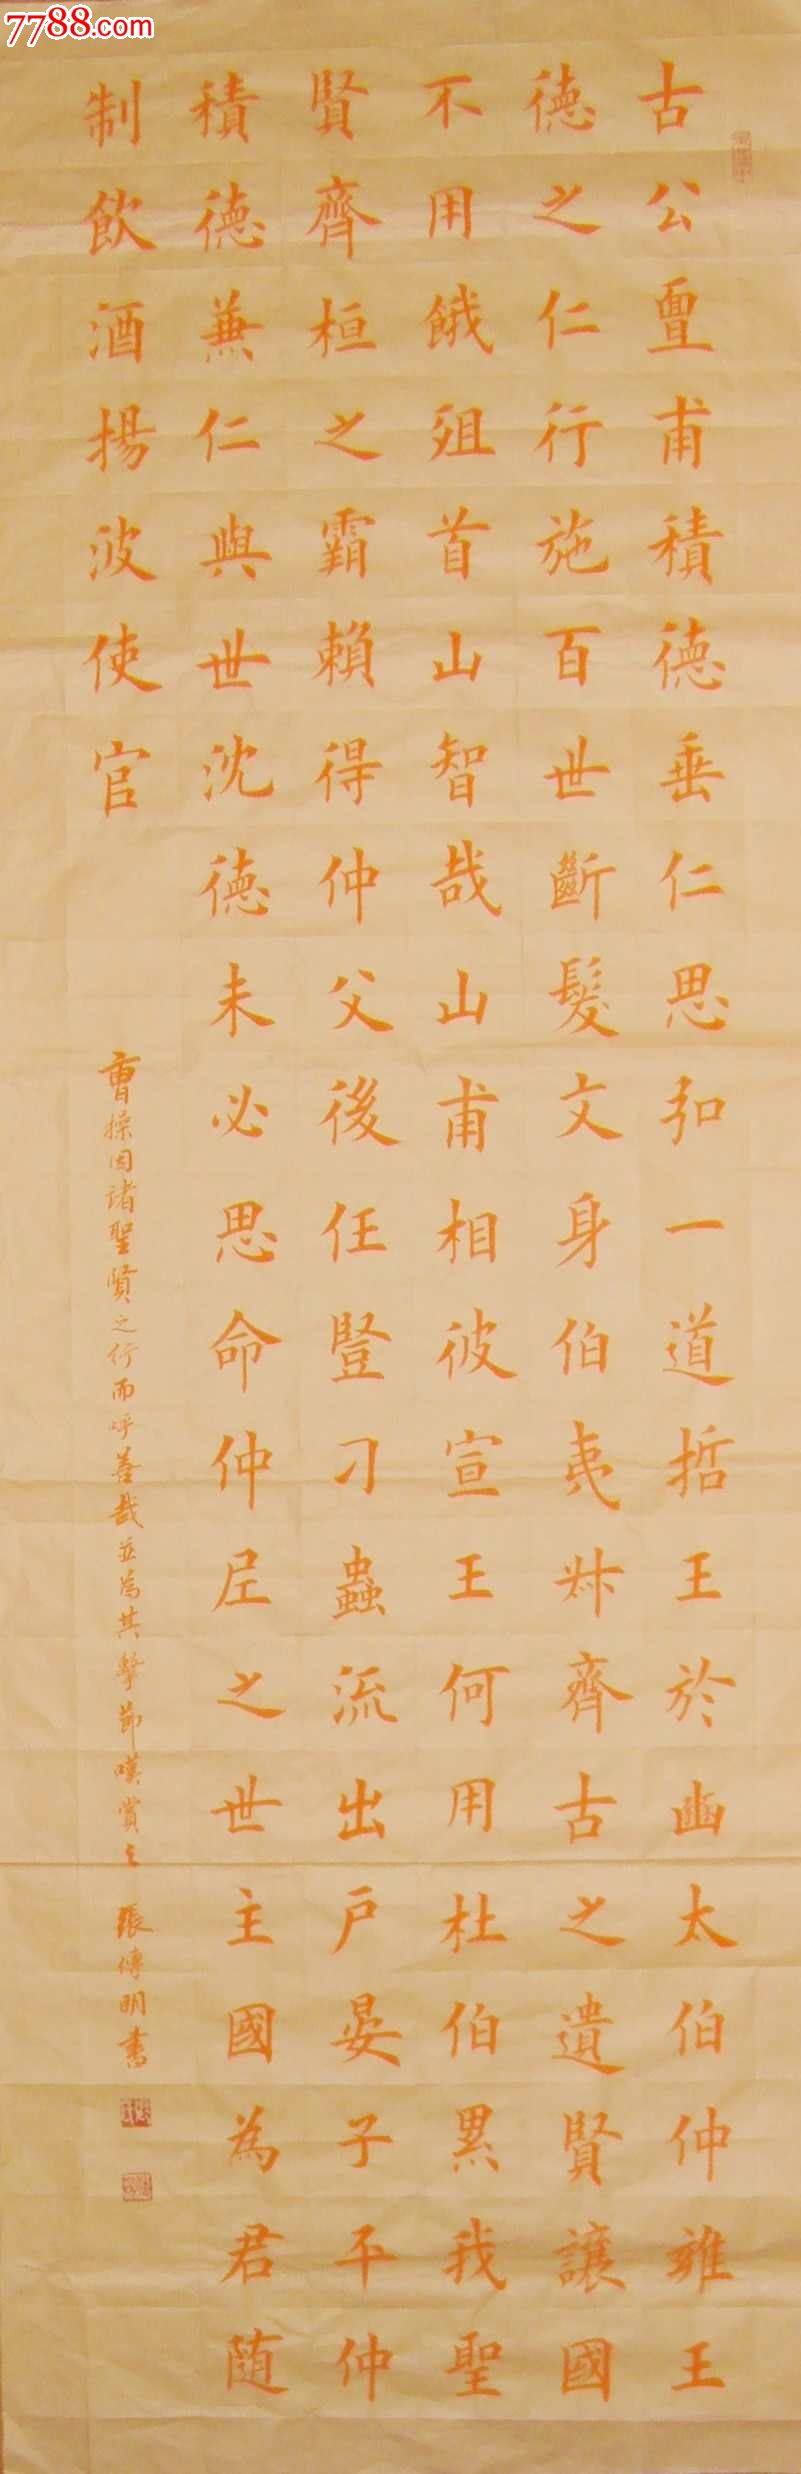 7788.com
古公亶甫積德垂仁思弘一道哲王於豳太伯仲雍王
德之仁行施百世斷髮文身伯夷叔齊古之遺賢讓國
不用餓殂首山智哉山甫相彼宣王何用杜伯累我聖
賢齊桓之霸賴得仲父後任豎刁蟲流出戶晏子平仲
積德兼仁與世沈德未必思命仲尼之世主國為君随
制飲酒揚波使官
曹操因諸聖賢之行而呼善哉並為其擊節嘆賞之
張傳明書